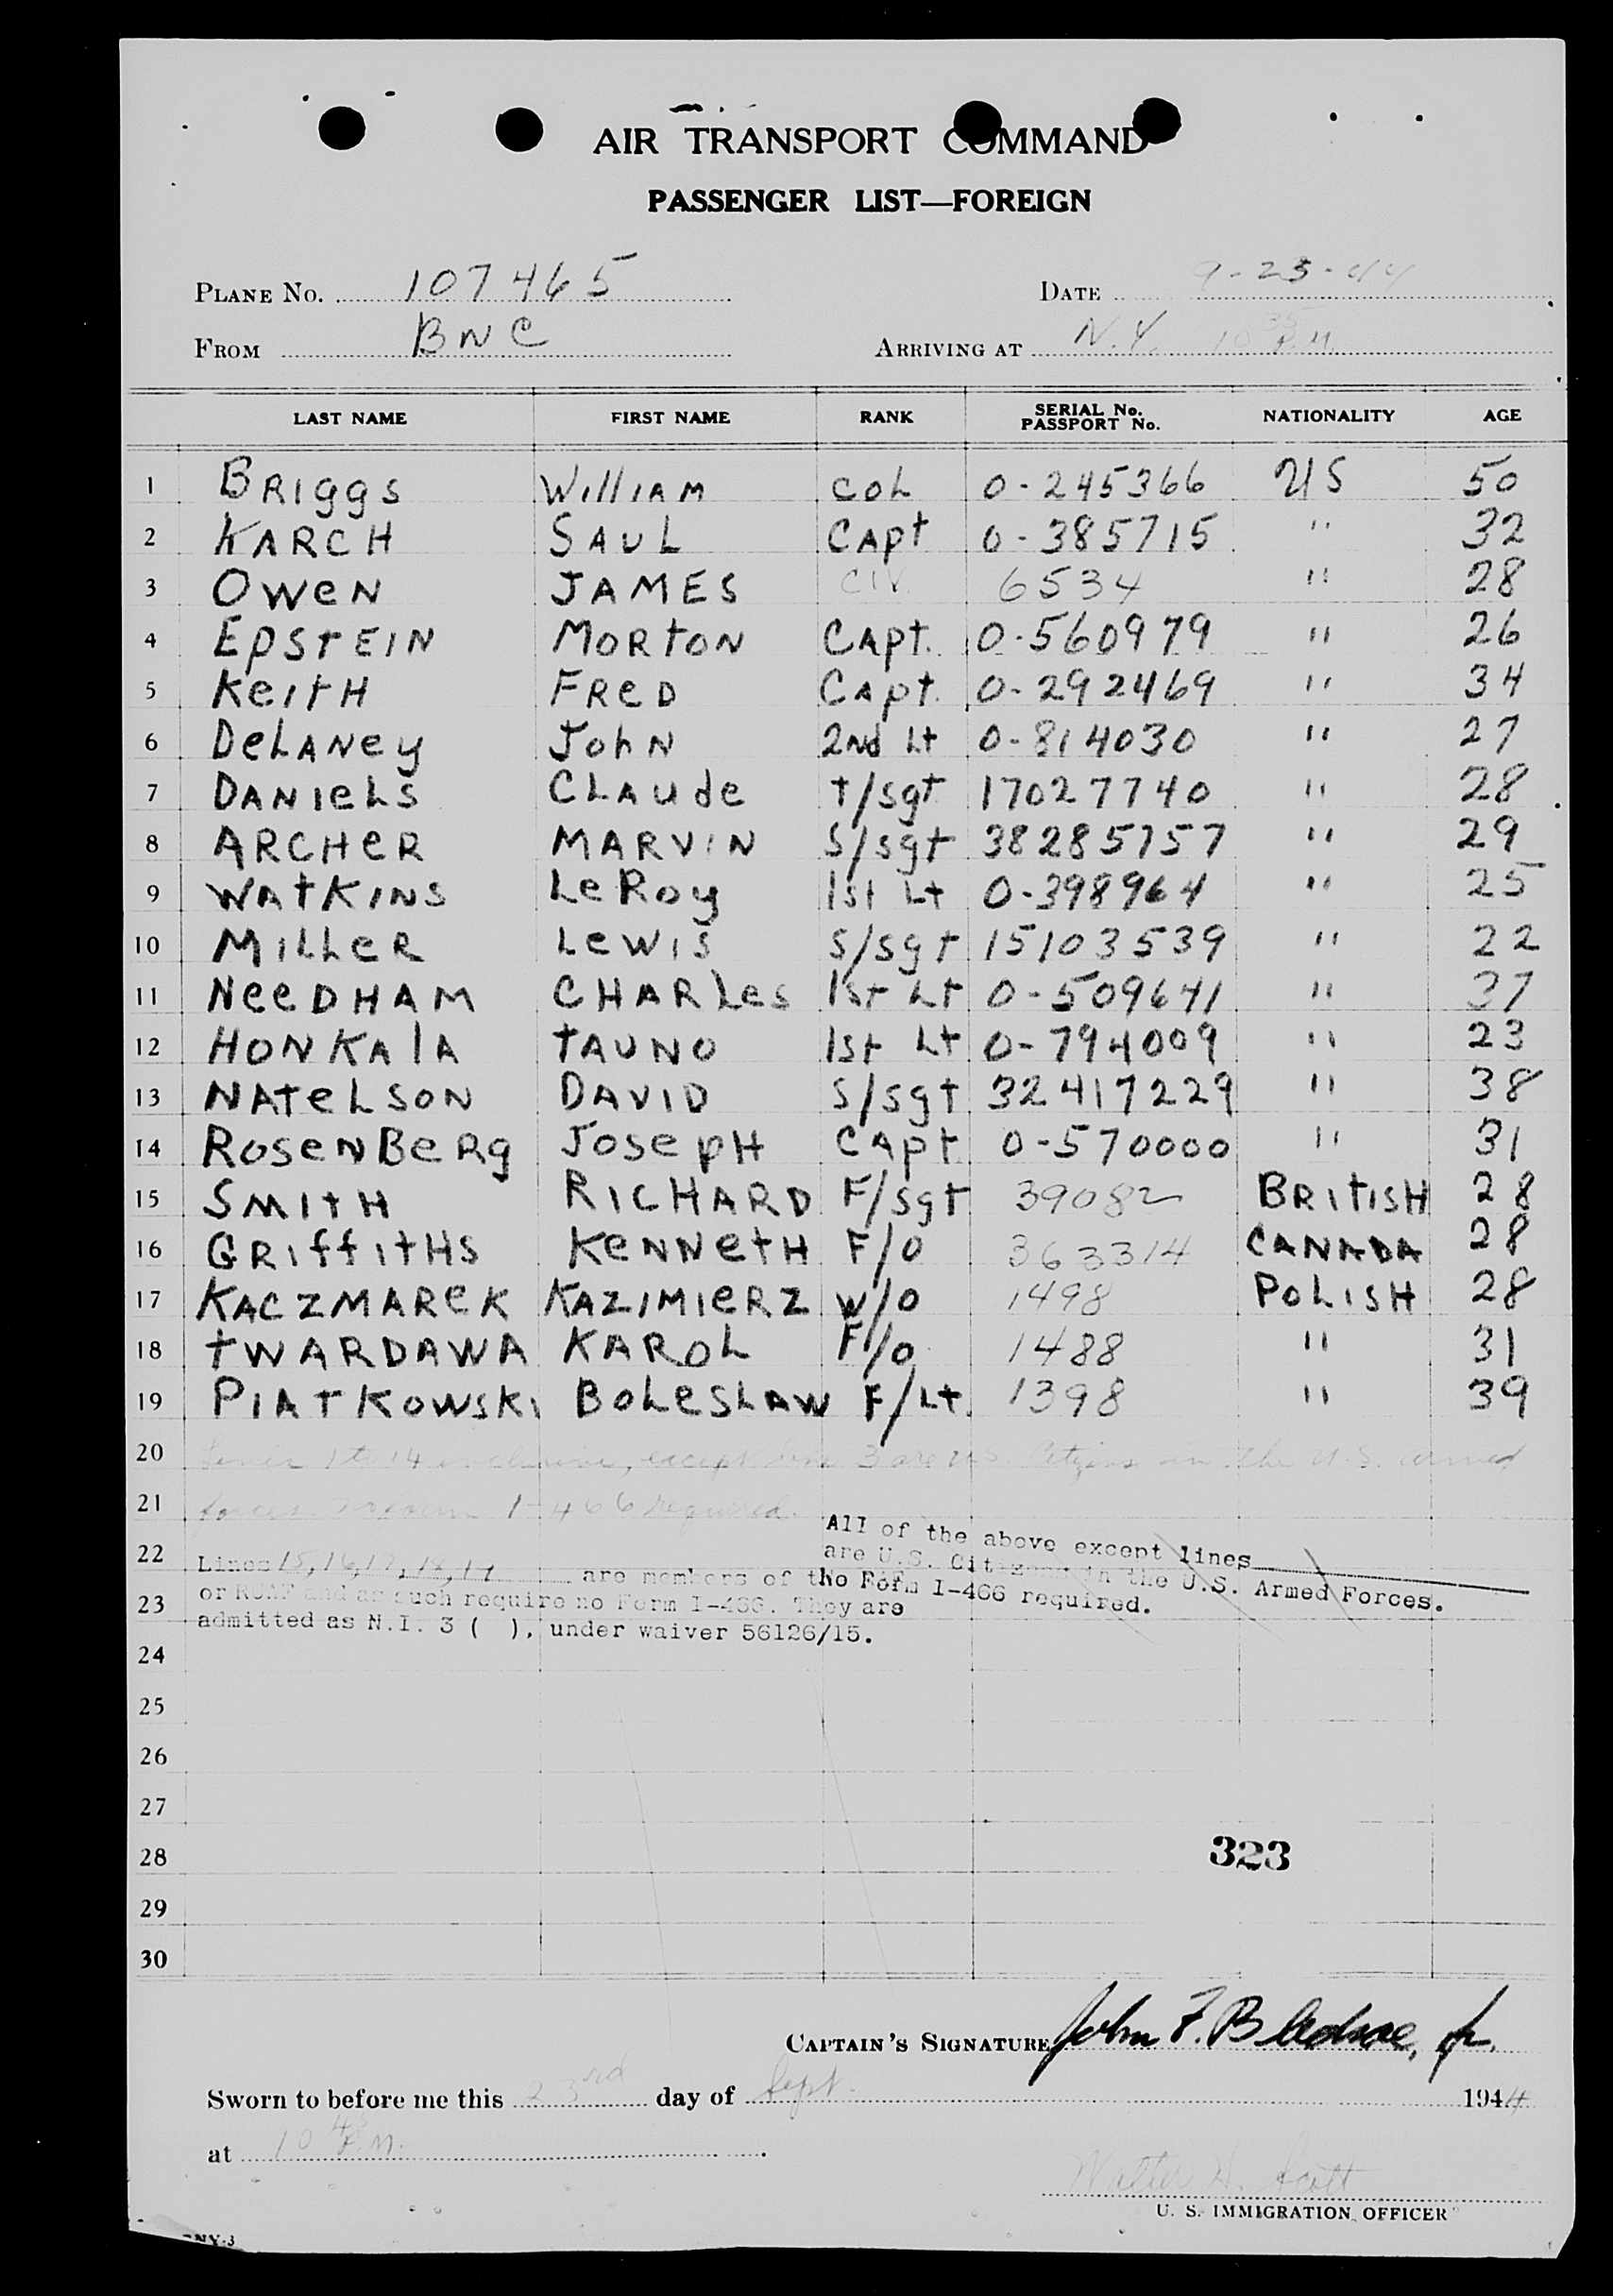 AIR TRANSPORT COMMAND
PASSENGER LIST—FOREIGN
PLANE No. 107465 DATE 9-23-44
FROM BNC ARRIVING AT N.Y. 10 35 P.M.
LAST NAME FIRST NAME RANK SERIAL No. PASSPORT No. NATIONALITY AGE
1 BRIggS William COL 0-245366 US 50
2 KARCH SAUL CApt 0-385715 " 32
3 OWeN JAMES CIV. 6534 " 28
4 EpSTEIN MORtON CApt. 0-560979 " 26
5 KeitH FReD CApt. 0-292469 " 34
6 DeLANey JohN 2Nd Lt 0-814030 " 27
7 DANIeLS CLAUde t/sgt 17027740 " 28
8 ARCHeR MARVIN S/sgt 38285757 " 29
9 WAtKINS LeRoy 1st Lt 0-398964 " 25
10 MiLLeR LeWiS S/sgt 15103539 " 22
11 NeeDHAM CHARLes 1st Lt 0-509641 " 37
12 HONKAlA tAUNO 1st Lt 0-794009 " 23
13 NAteLSON DAVID S/sgt 32417229 " 38
14 RoseNBeRg JosepH CApt 0-570000 " 31
15 SMItH RICHARD F/sgt 39082 BRItISH 28
16 GRiffitHS KeNNetH F/O 363314 CANADA 28
17 KACZMAReK KAZIMIeRZ W/O 1498 PoLISH 28
18 tWARDAWA KAROL F/O 1488 " 31
19 PIAtKOWSKi BoLeSLAW F/Lt. 1398 " 39
20 Lines 1 to 14 inclusive, except line 3 are U.S. Citizens in the U.S. armed
21 forces. No form I-466 required.
All of the above except lines
are U.S. Citizens in the U.S. Armed Forces.
No Form I-466 required.
22 Lines 15, 16, 17, 18, 19 are members of the
23 or RCAF and as such require no Form I-466. They are
admitted as N.I. 3 ( ), under waiver 56126/15.
24
25
26
27
323
28
29
30
CAPTAIN'S SIGNATURE John F. Bledsoe, Jr.
Sworn to before me this 23rd day of Sept. 1944
at 10 45 P.M.
Walter H. Scott
U. S. IMMIGRATION OFFICER